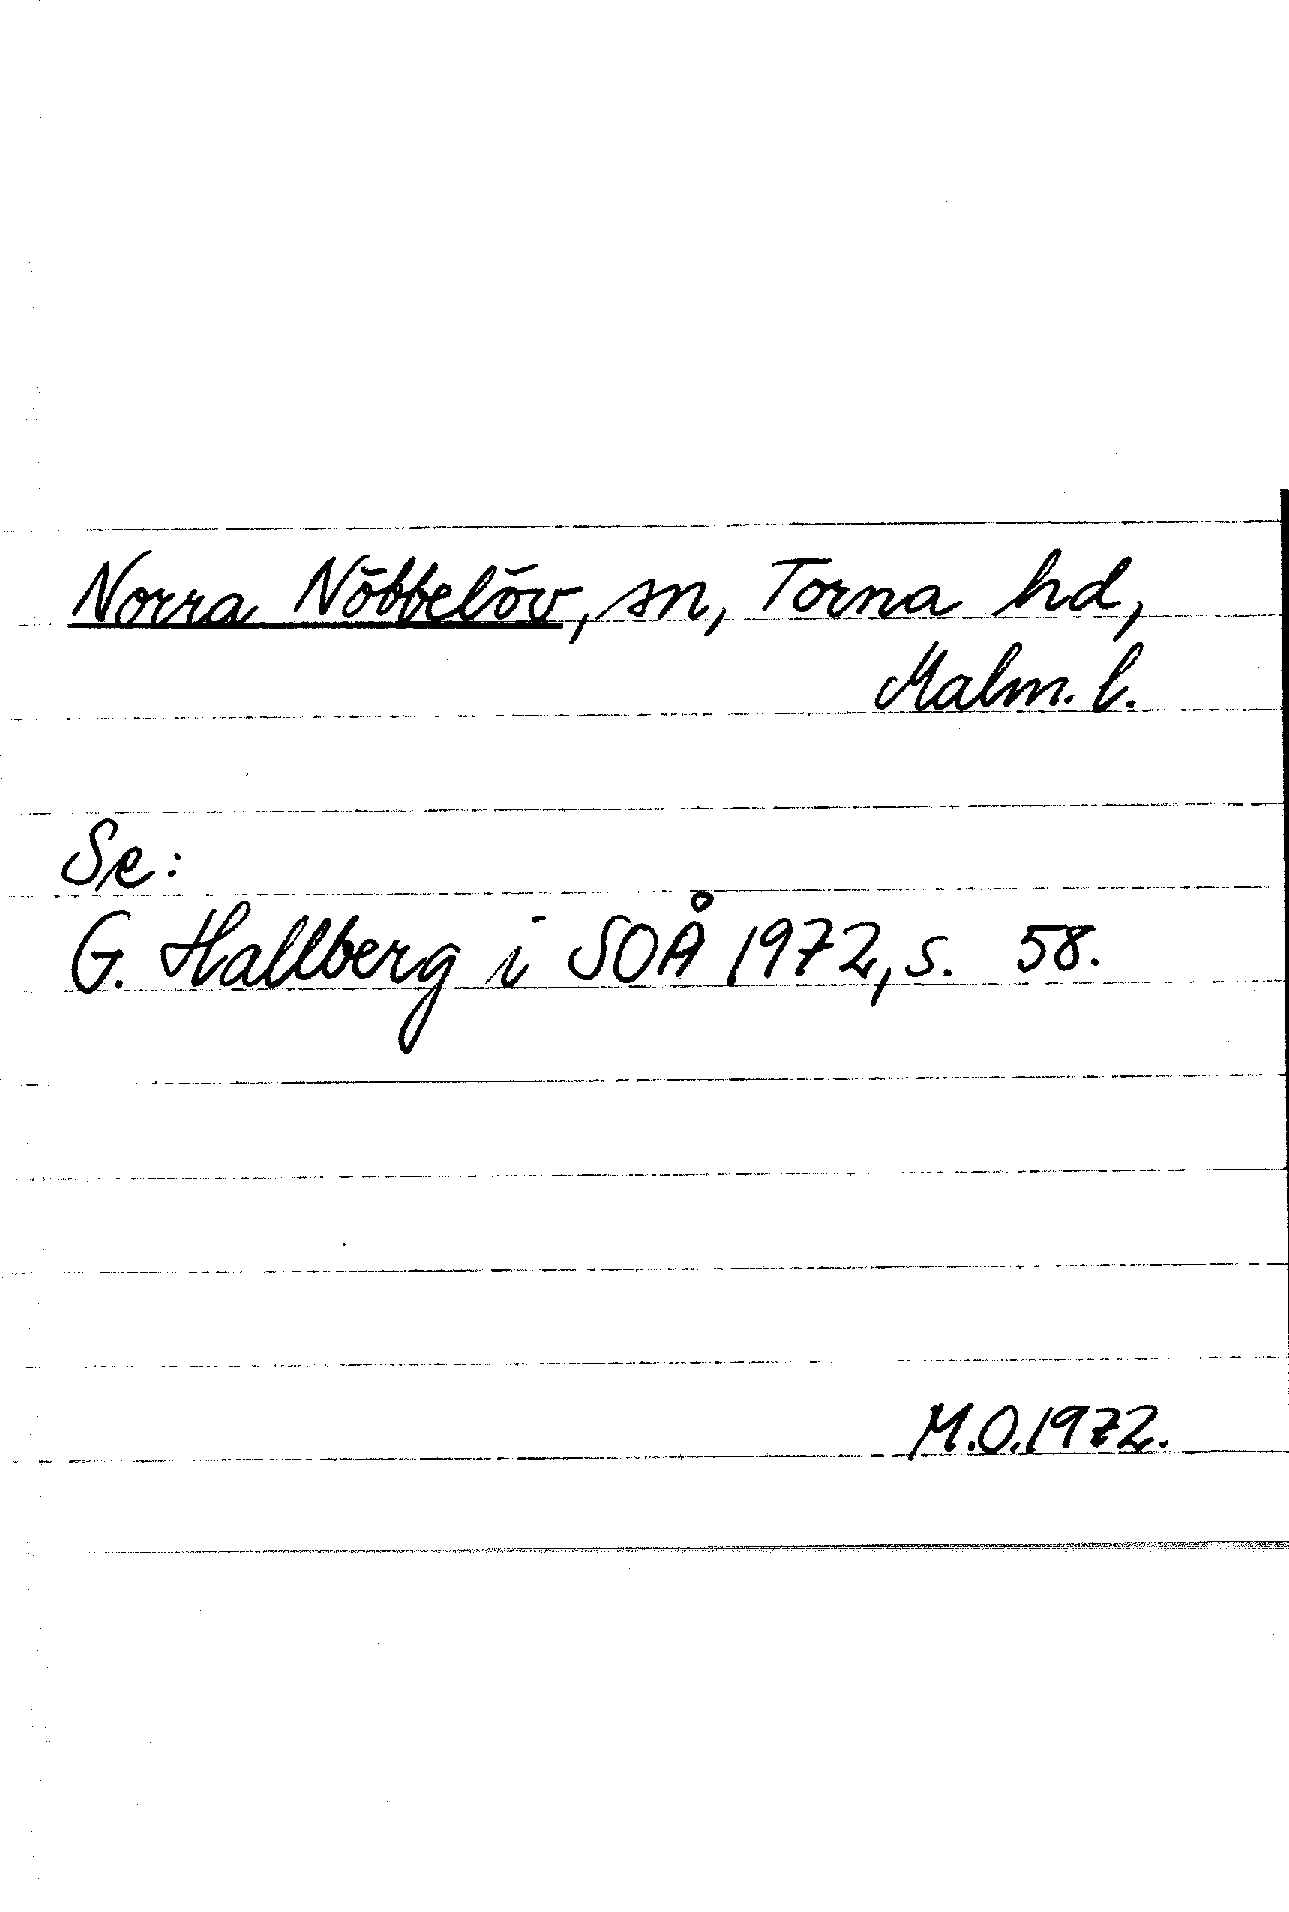 Norra Nöbbelöv, sn, Torna hd,
Malm. l.
Se:
G. Hallberg i SOÅ 1972, s. 58.
M.O.1972.